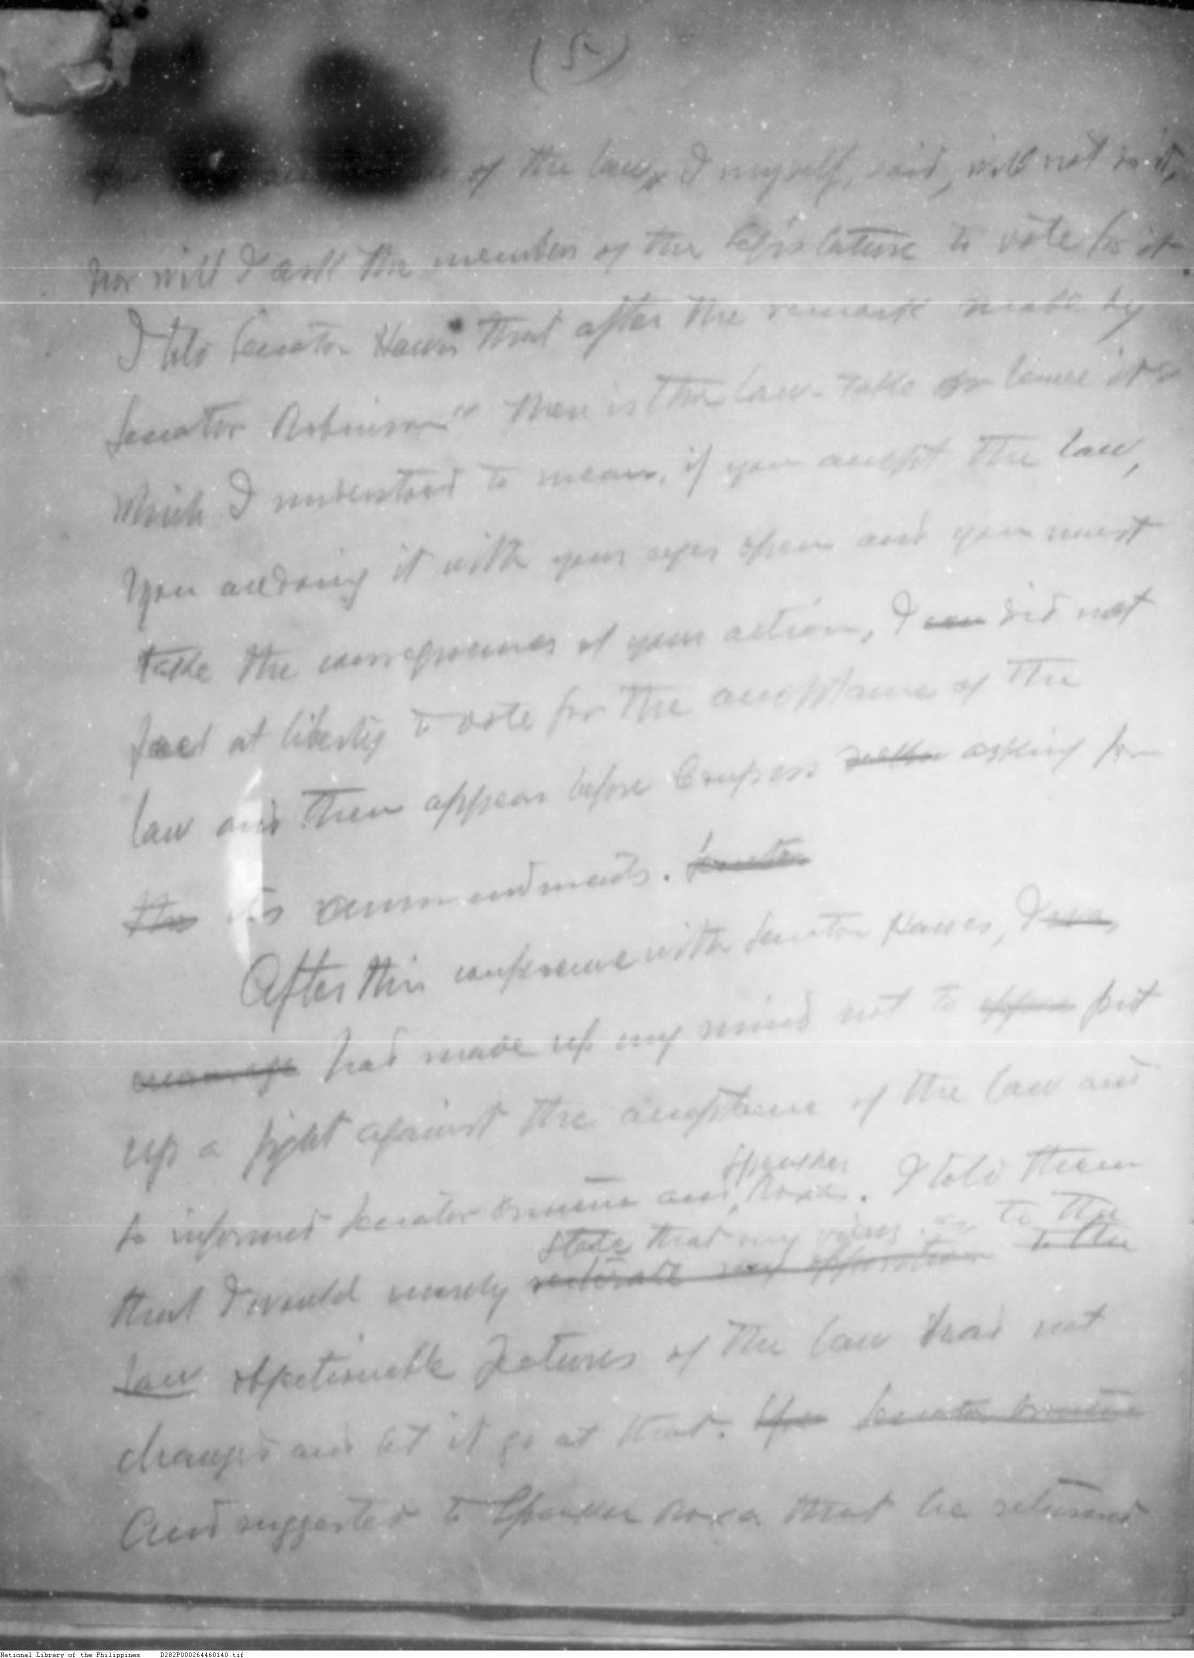 (5)
of the law, I myself, said, will not do it,
Nor will I ask the members of the Legislature to vote for it.
I told Senator Hawes that after the remark made by
Senator Robinson "there is the law - take or leave it"
which I understood to mean, if you accept the law,
you are doing it with your eyes open and you must
take the consequences of your action, I did not
feel at liberty to vote for the acceptance of the
law and then appear before Congress asking for
its ammendments. Senator
After this conference with Senator Hawes, I was
had made up my mind not to put
up a fight against the acceptance of the law and
Speaker
so informed Senator Osmeña and Roxas. I told them
state that my views to the
that I would merely reiterate my opposition to the
law objectionable features of the law had not
changed and let it go at that. Senator Osmeña
And suggested to Speaker Roxas that he returned
National Library of the Philippines D282P000264460140.tif